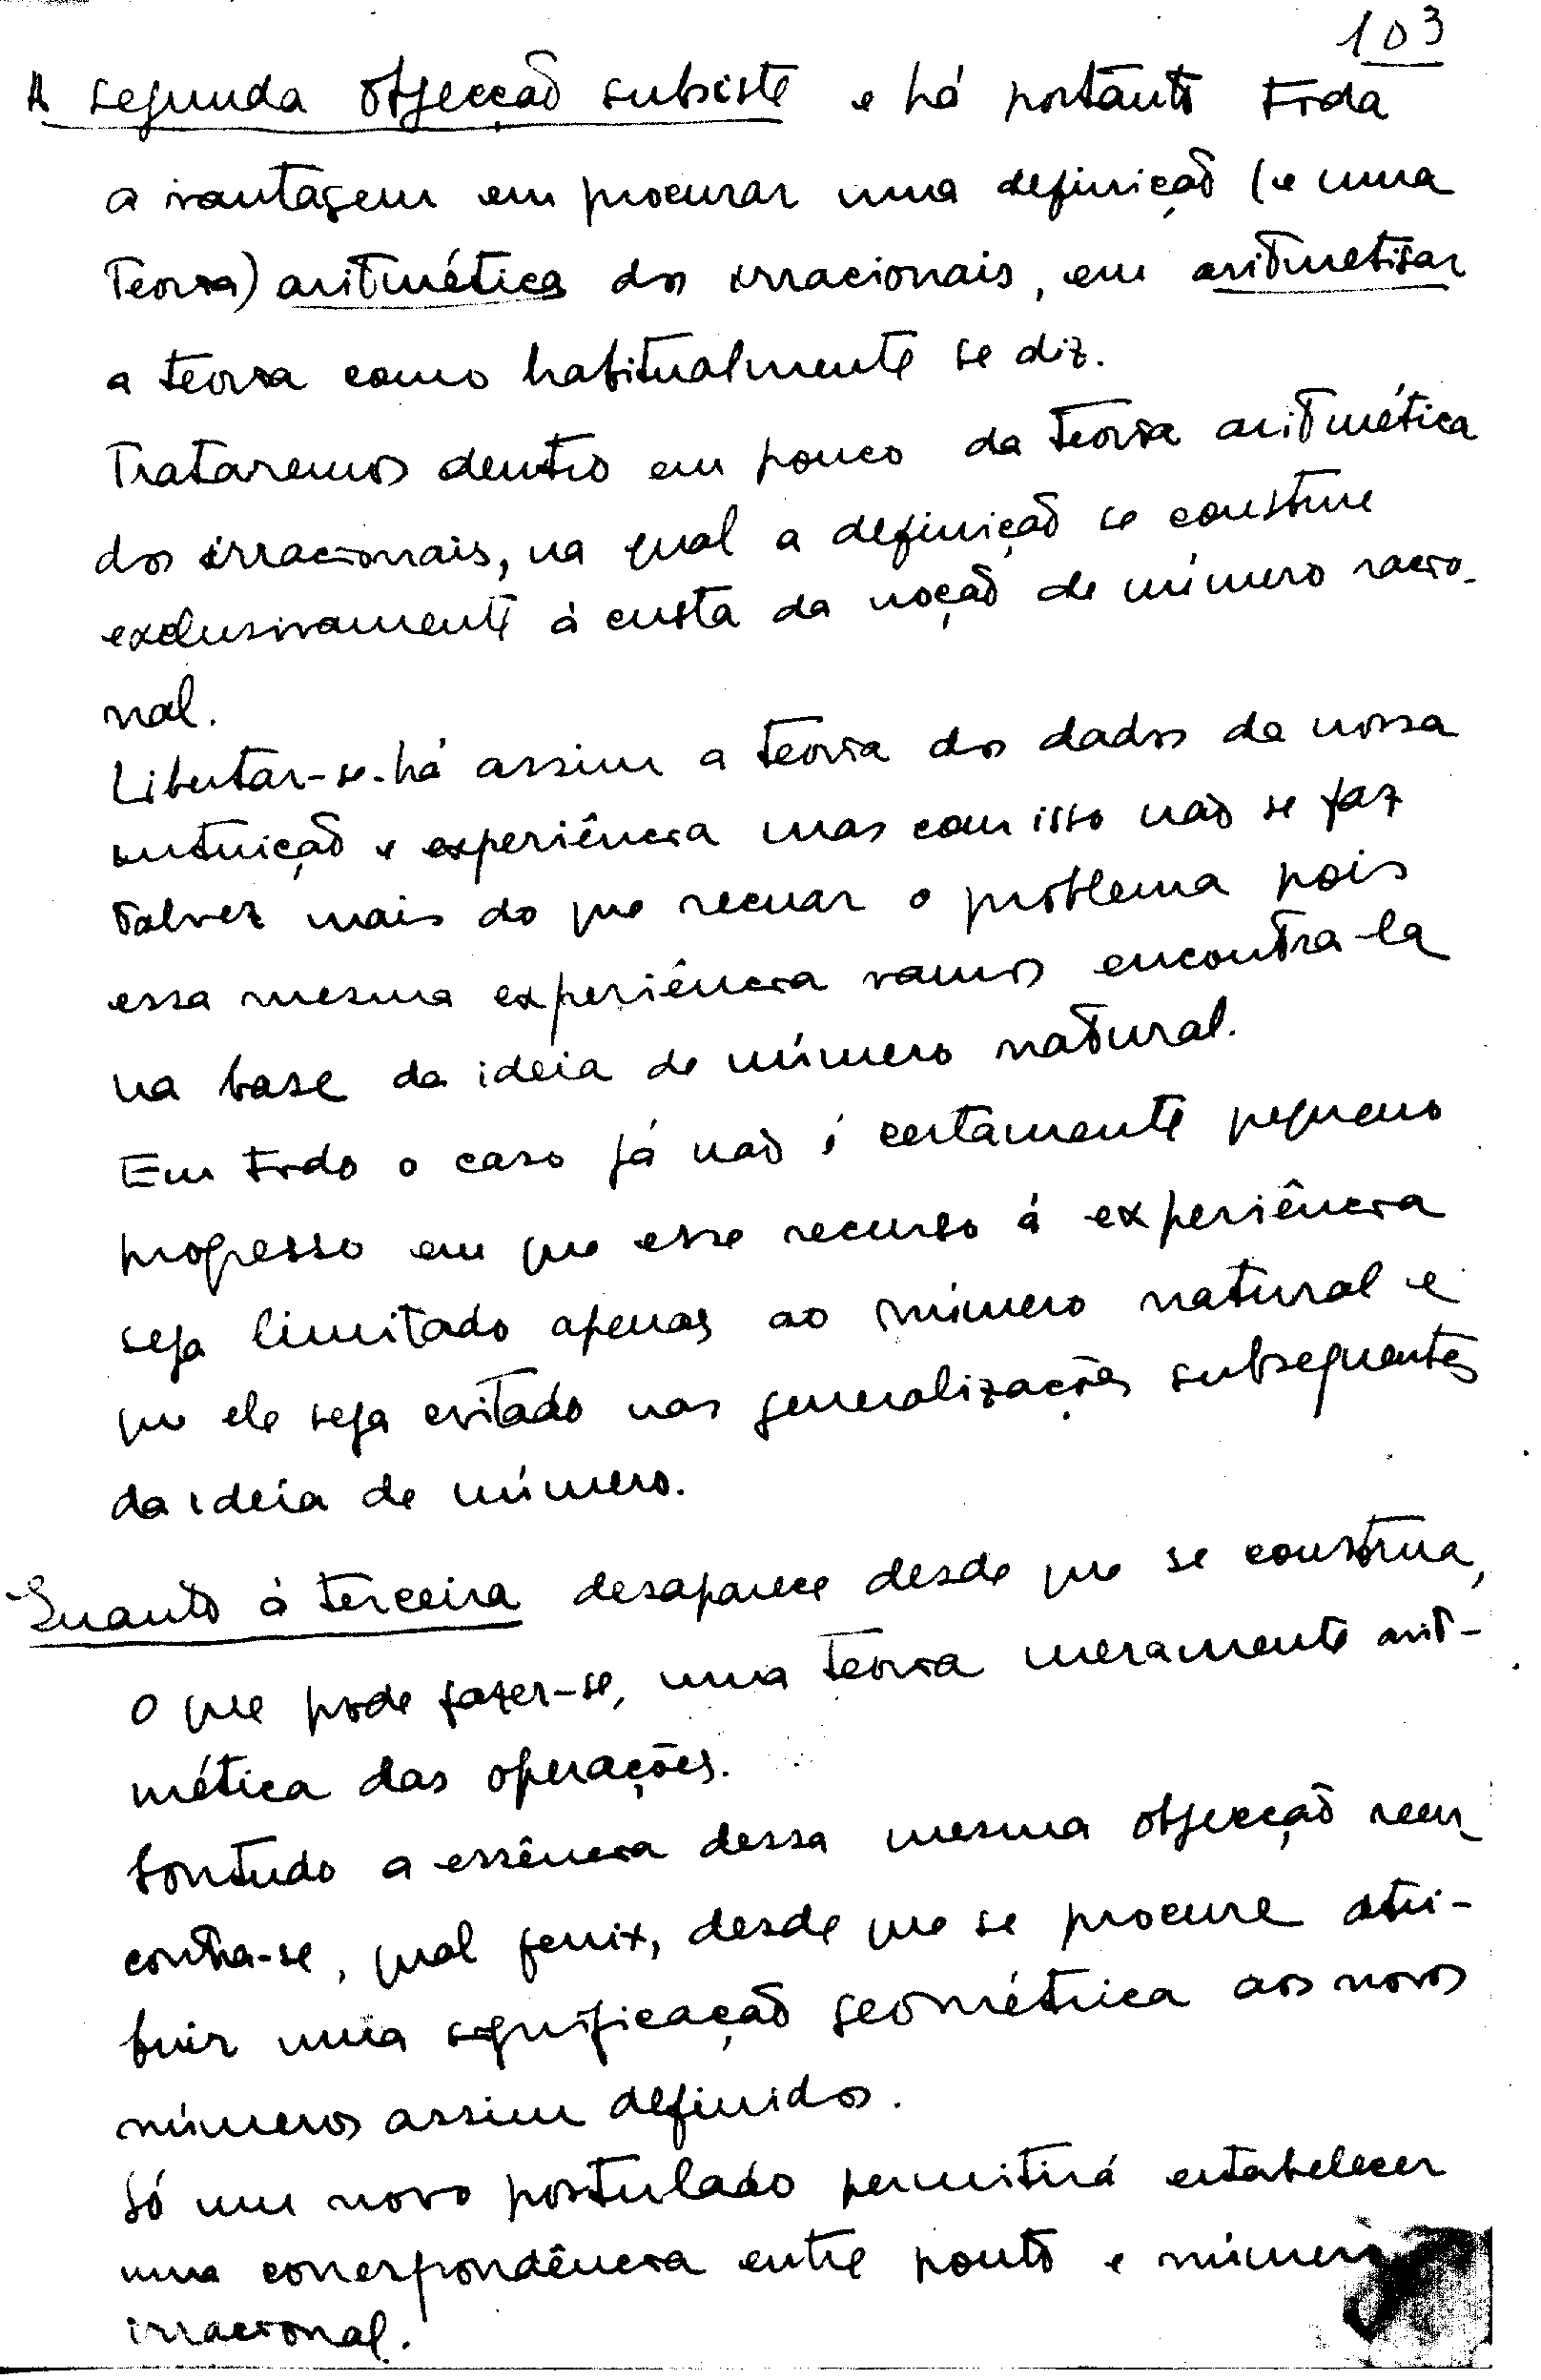 103
A segunda objecção subsiste e há portanto toda
a vantagem em procurar uma definição (e uma
teoria) aritmética dos irracionais, em aritmetisar
a teoria como habitualmente se diz.
Trataremos dentro em pouco da teoria aritmética
dos irracionais, na qual a definição se construe
exclusivamente à custa da noção de número racio-
nal.
Libertar-se-há assim a teoria dos dados da nossa
intuição e experiência mas com isso não se faz
talvez mais do que recuar o problema pois
essa mesma experiência vamos encontra-la
na base da ideia de número natural.
Em todo o caso já não é certamente pequeno
progresso em que esse recurso á experiência
seja limitado apenas ao número natural e
que ele seja evitado nas generalizações subsequentes
da ideia de número.
Quanto à terceira desaparece desde que se construa,
o que pode fazer-se, uma teoria meramente arit-
mética das operações.
Contudo a essência dessa mesma objecção reen-
contra-se, qual fenix, desde que se procure atri-
buir uma significação geométrica aos novos
números assim definidos.
Só um novo postulado permitirá estabelecer
uma correspondência entre ponto e número
irracional.